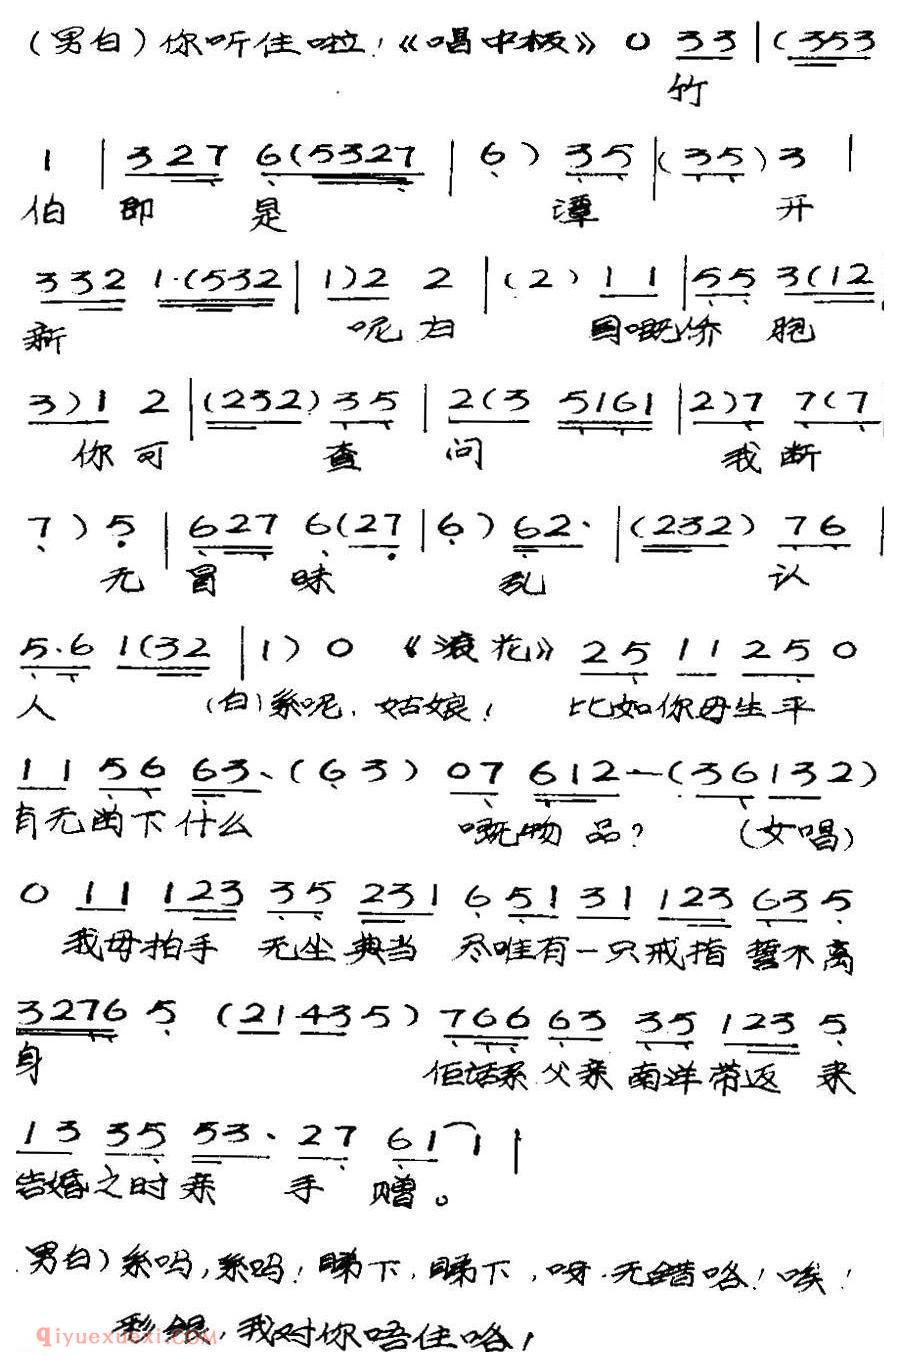 (男白)你听住啦!《唱中板》 0 33 | (353
竹
1 | 327 6(5327 | 6) 35 | (35) 3 |
伯 即 是 潭 开
332 1·(532 | 1)2 2 | (2) 11 | 55 3(12
新 呢 归 国嘅侨 胞
3)1 2 | (232) 35 | 2(3 5161 | 2)7 7(7
你可 查 问 我断
7) 5 | 627 6(27 | 6) 62· | (232) 76 |
无 冒 昧 乱 认
5·6 1(32 | 1) 0 《滚花》 25 11 25 0
人 (白)系呢,姑娘! 比如你母生平
11 56 63、(63) 07 612—(36132)
有无卤下什么 嘅物 品? (女唱)
0 11 123 35 231 6 51 31 123 63 5
我母拍手 无尘 典当 尽唯有一只戒指 誓不离
3276 5 (21 435) 766 63 35 123 5
身 佢话系 父亲 南洋带返 来
13 35 53· 27 61 1 |
结婚之时亲 手 赠。
男白)系吗,系吗!睇下,睇下,呀·无错咯!唉!
彩银,我对你唔住咯!
qiyuexuexi.com